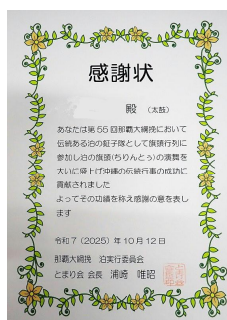 感謝状
殿 (太鼓)
あなたは第55回那覇大綱挽において
伝統ある泊の鉦子隊として旗頭行列に
参加し泊の旗頭(ちりんとぅ)の演舞を
大いに盛上げ沖縄の伝統行事の成功に
貢献されました
よってその功績を称え感謝の意を表し
ます
令和7(2025)年10月12日
那覇大綱挽 泊実行委員会
とまり会 会長 浦崎 唯昭